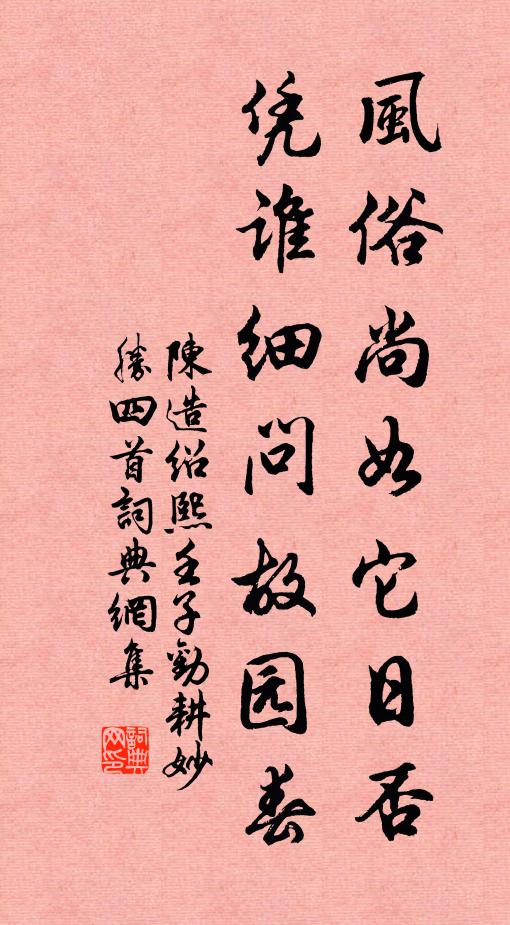 風俗尚如它日否
凭谁细问故园春
陳造绍熙壬子勸耕妙
勝四首詞典網集
詞典网印